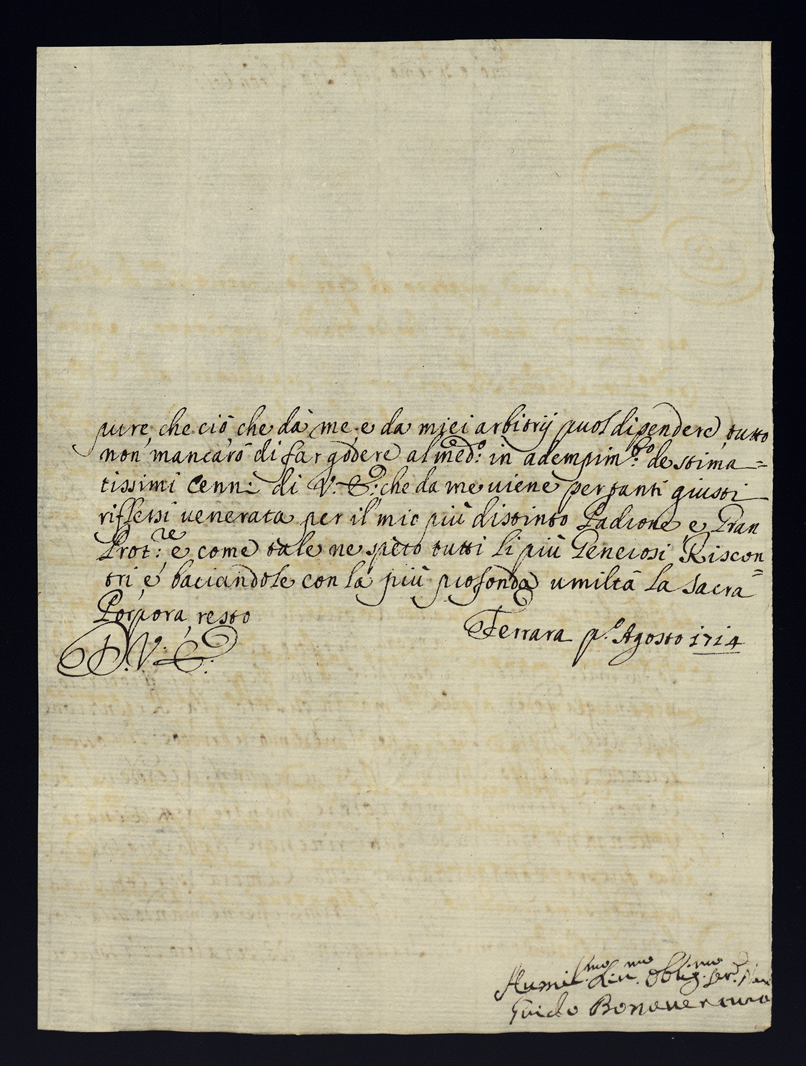 pure, che ciò che da me, e da miei arbitrij puol dipendere, tutto
non mancarò di far godere al med.º in adempim.to de stima=
tissimi cenni di V. E. che da me viene per tanti giusti
riflessi venerata per il mio più distinto Padrone, e Gran
Prot.re e come tale ne spero tutti li più Generosi Riscon=
tri, e baciandole con la più profonda umiltà la Sacra
Porpora, resto
Ferrara p.º Agosto 1714
D. V. E.
Humil.mo Div.mo Oblig.mo Ser.
Guido Bonaventura